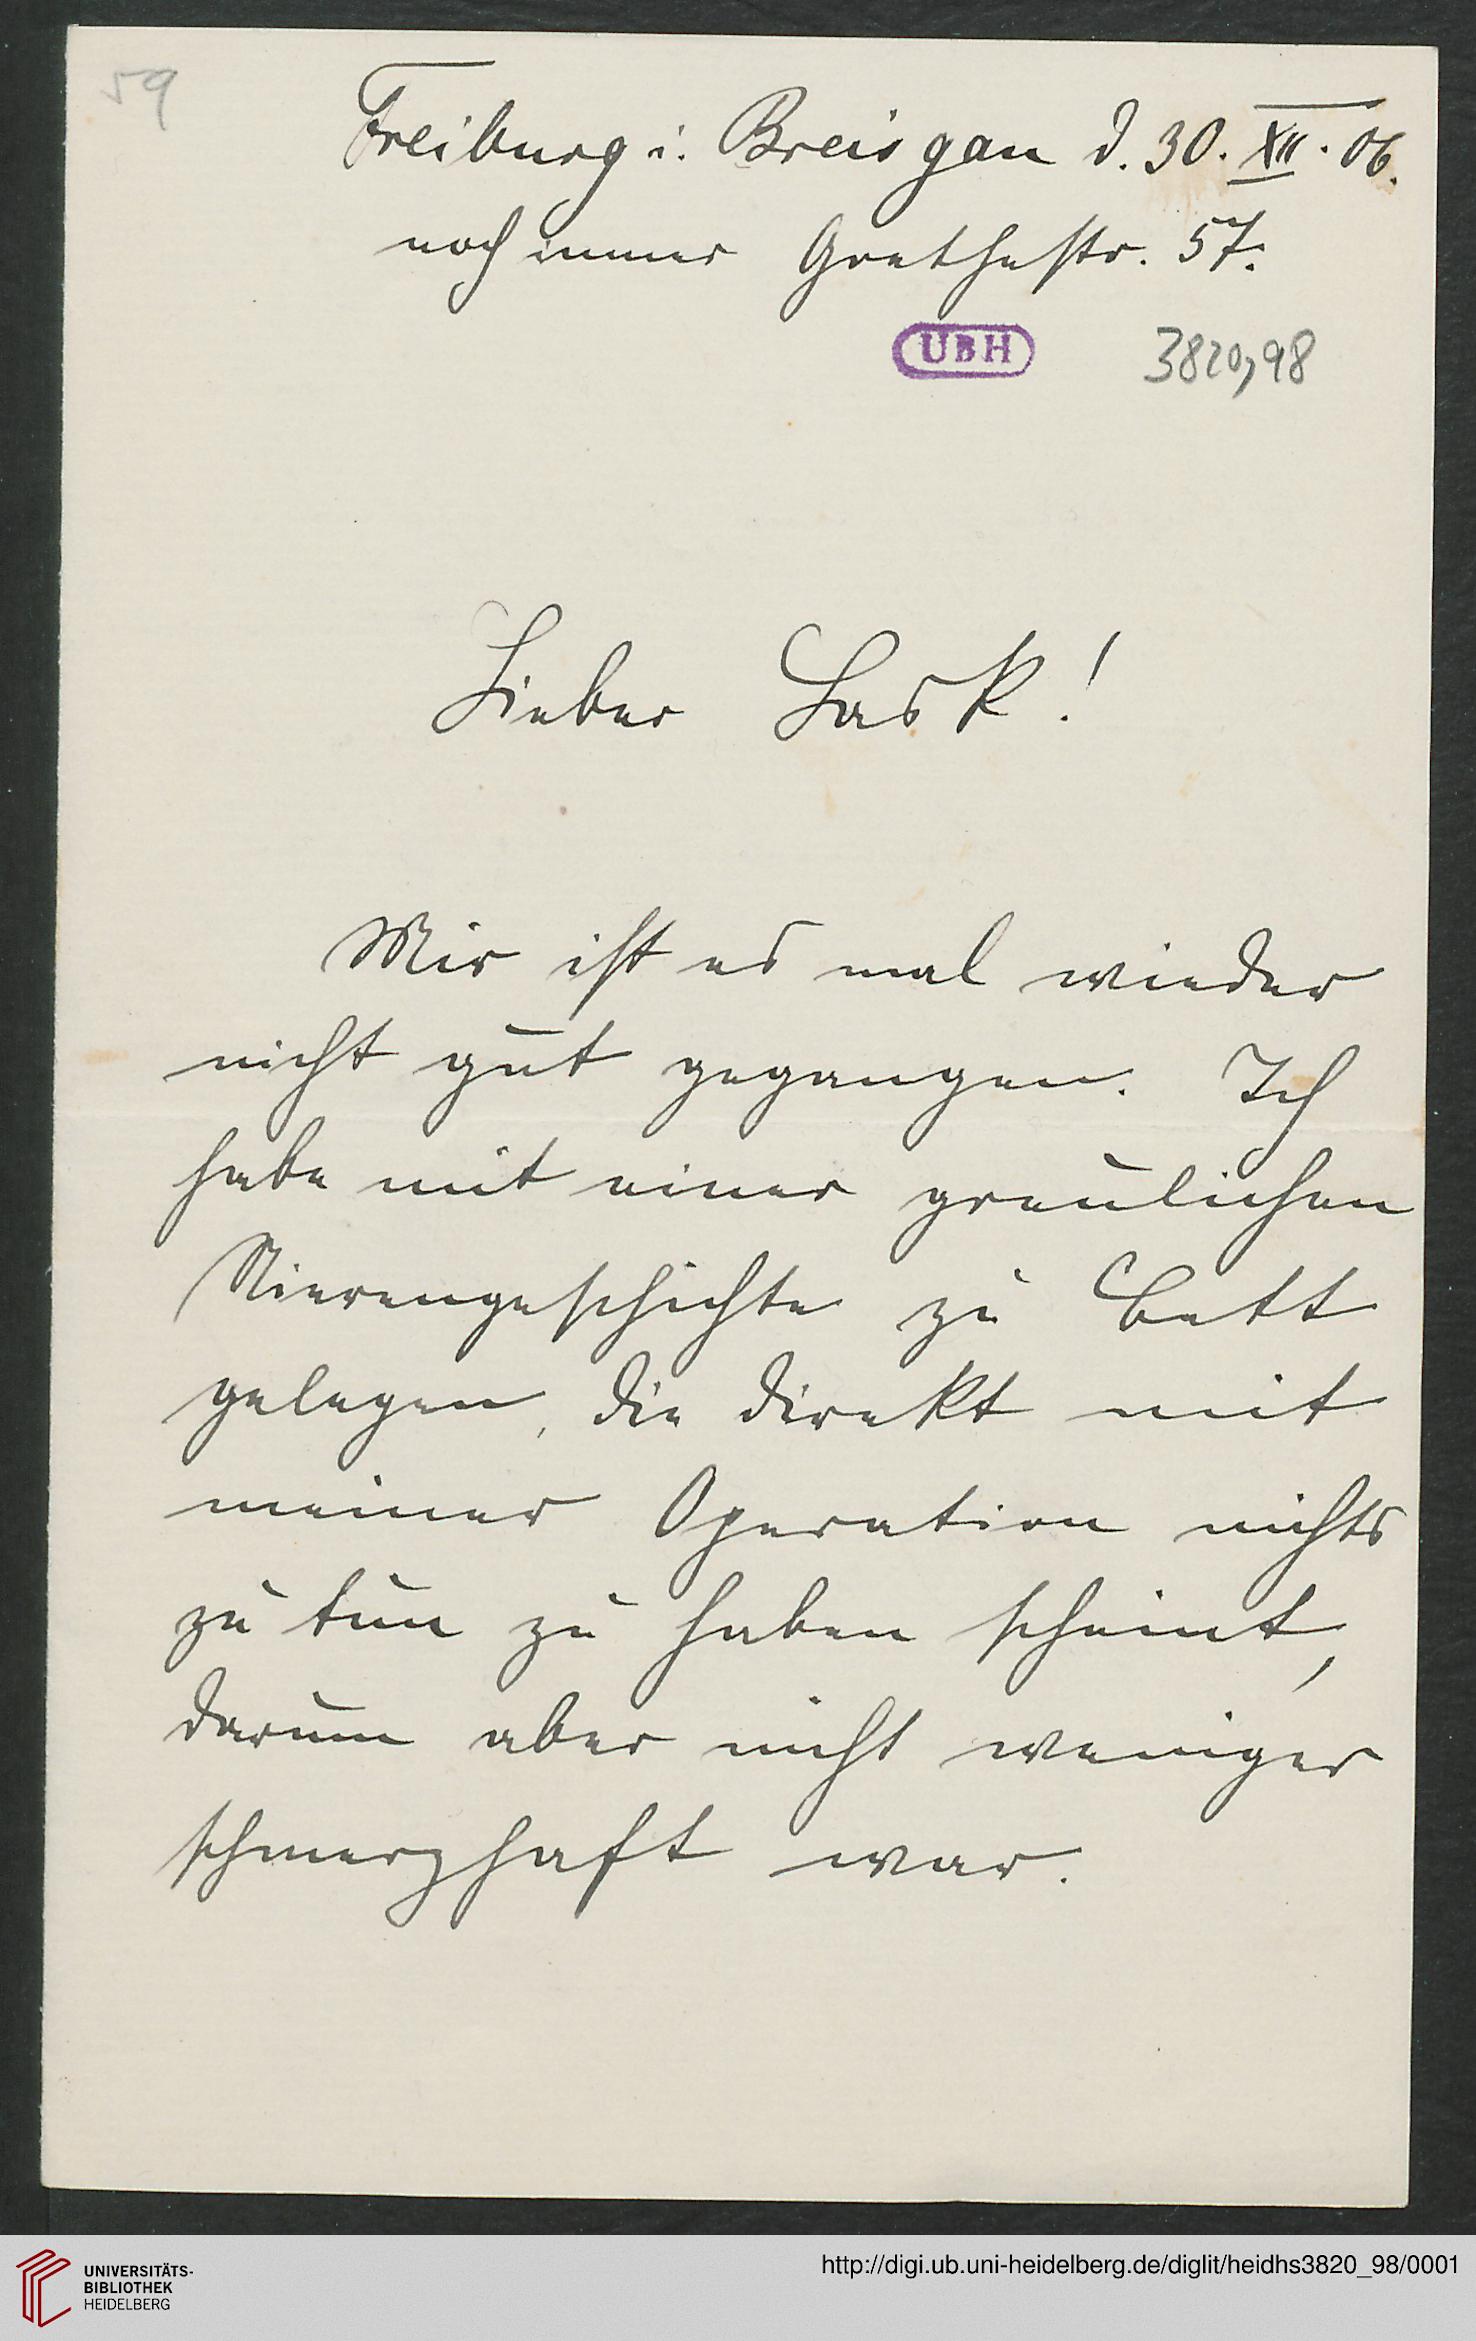 59
Freiburg i. Breisgau d. 30. XII. 06.
noch immer Goethestr. 57.
UBH 3820,98
Lieber Lask!
Mir ist es mal wieder
nicht gut gegangen. Ich
habe mit einer greulichen
Nierengeschichte zu Bett
gelegen, die direkt mit
meiner Operation nichts
zu tun zu haben scheint,
darum aber nicht weniger
schmerzhaft war.
UNIVERSITÄTS-
BIBLIOTHEK
HEIDELBERG
http://digi.ub.uni-heidelberg.de/diglit/heidhs3820_98/0001